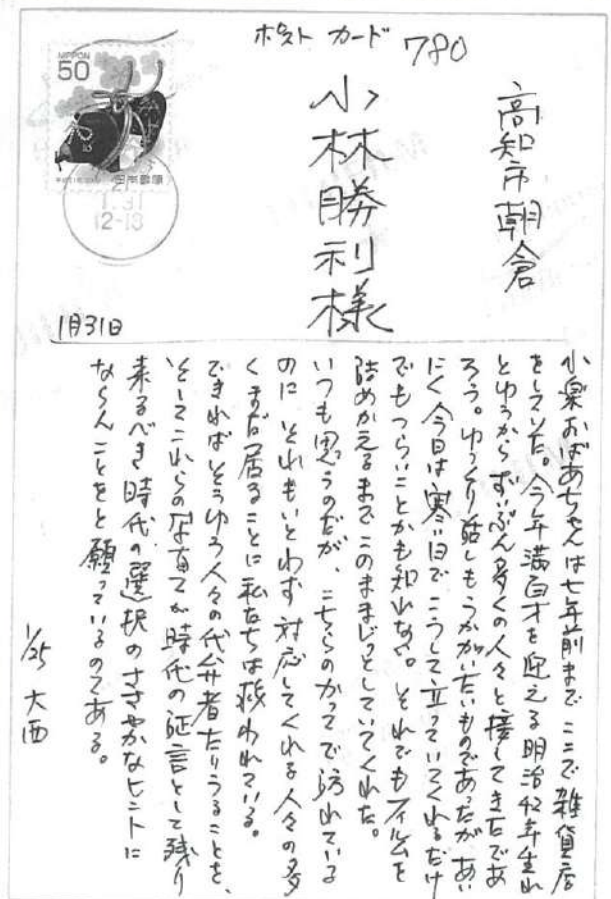 ポスト カード
780
高知市朝倉
小林勝利様
NIPPON
50
日本郵便
21
1.31
12-18
1月31日
小栗おばあちゃんは七年前まで ここで雑貨店
をしていた。今年満百才を迎える明治42年生れ
とゆうからずいぶん多くの人々と接してきたであ
ろう。ゆっくり話しもうかがいたいものであったが あい
にく今日は寒い日で こうして立っていてくれるだけ
でもつらいことかも知れない。それでもフィルムを
詰めかえるまで このままじっとしていてくれた。
いつも思うのだが、こちらのかってで訪れている
のに いとわず 対応してくれる人々の多
くまだ居ることに私たちは救われている。
できればそうゆう人々の代弁者たりうることを、
そしてこれらの写真が時代の証言として残り
来るべき時代の選択のささやかなヒントに
ならんことをと願っているのである。
1/25 大西